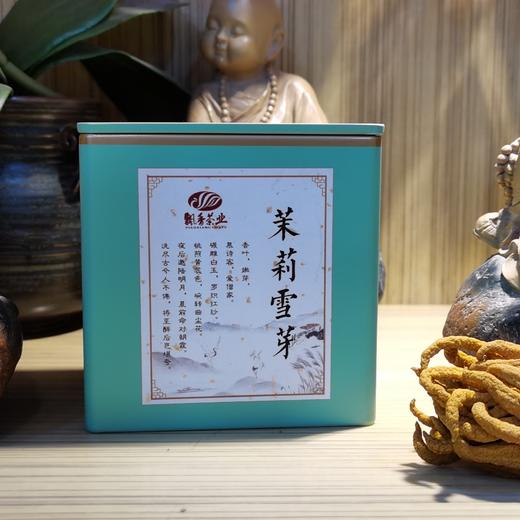 飘香茶业
茉莉雪芽
香叶，嫩芽，
慕诗客，爱僧家。
碾雕白玉，罗织红纱。
铫煎黄蕊色，碗转曲尘花。
夜后邀陪明月，晨前命对朝霞。
洗尽古今人不倦，将至醉后岂堪夸。